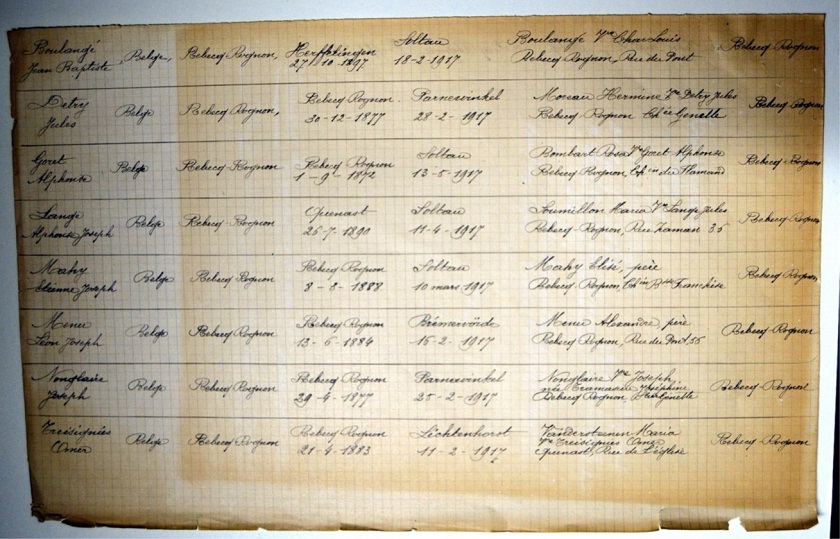 Boulangé Belge, Rebecq Rognon, Herffelingen Soltau Boulangé Vve Char Louis Rebecq Rognon
Jean Baptiste 27-10-1897 18-2-1917 Rebecq Rognon, Rue du Pont
Detry Belge Rebecq Rognon, Rebecq Rognon Parnewinkel Moreau Hermine Vve Detry Jules Rebecq Rognon
Jules 30-12-1877 28-2-1917 Rebecq Rognon Ch. Genette
Goret Belge Rebecq-Rognon Rebecq Rognon Soltau Bombart Rosa Vve Goret Alphonse Rebecq-Rognon
Alphonse 1-9-1872 13-5-1917 Rebecq Rognon, Chin du Flamand
Lange Belge Rebecq-Rognon Quenast Soltau Soumillon Maria Vve Lange Jules Rebecq-Rognon
Alphonse Joseph 26-7-1890 11-4-1917 Rebecq-Rognon, Rue Zaman 35
Mahy Belge Rebecq Rognon Rebecq Rognon Soltau Mahy Elisé, père Rebecq Rognon,
Etienne Joseph 8-8-1888 10 mars 1917 Rebecq Rognon, Franchise
Menu Belge Rebecq Rognon Rebecq Rognon Bremervörde Menu Alexandre, père Rebecq-Rognon
Léon Joseph 13-6-1884 15-2-1917 Rebecq Rognon, Rue du Pont, 55
Nonglaire Belge Rebecq Rognon Rebecq Rognon Parnewinkel Nonglaire Vve Joseph, Rebecq-Rognon
Joseph 29-4-1877 25-2-1917 née Joséphine
Rebecq Rognon, Genette
Treisignies Belge Rebecq-Rognon Rebecq Rognon Lichtenhorst Vanderstienen Maria Rebecq-Rognon
Omer 21-4-1883 11-2-1917 Vve Treisignies Omer
Quenast, Rue de l'église